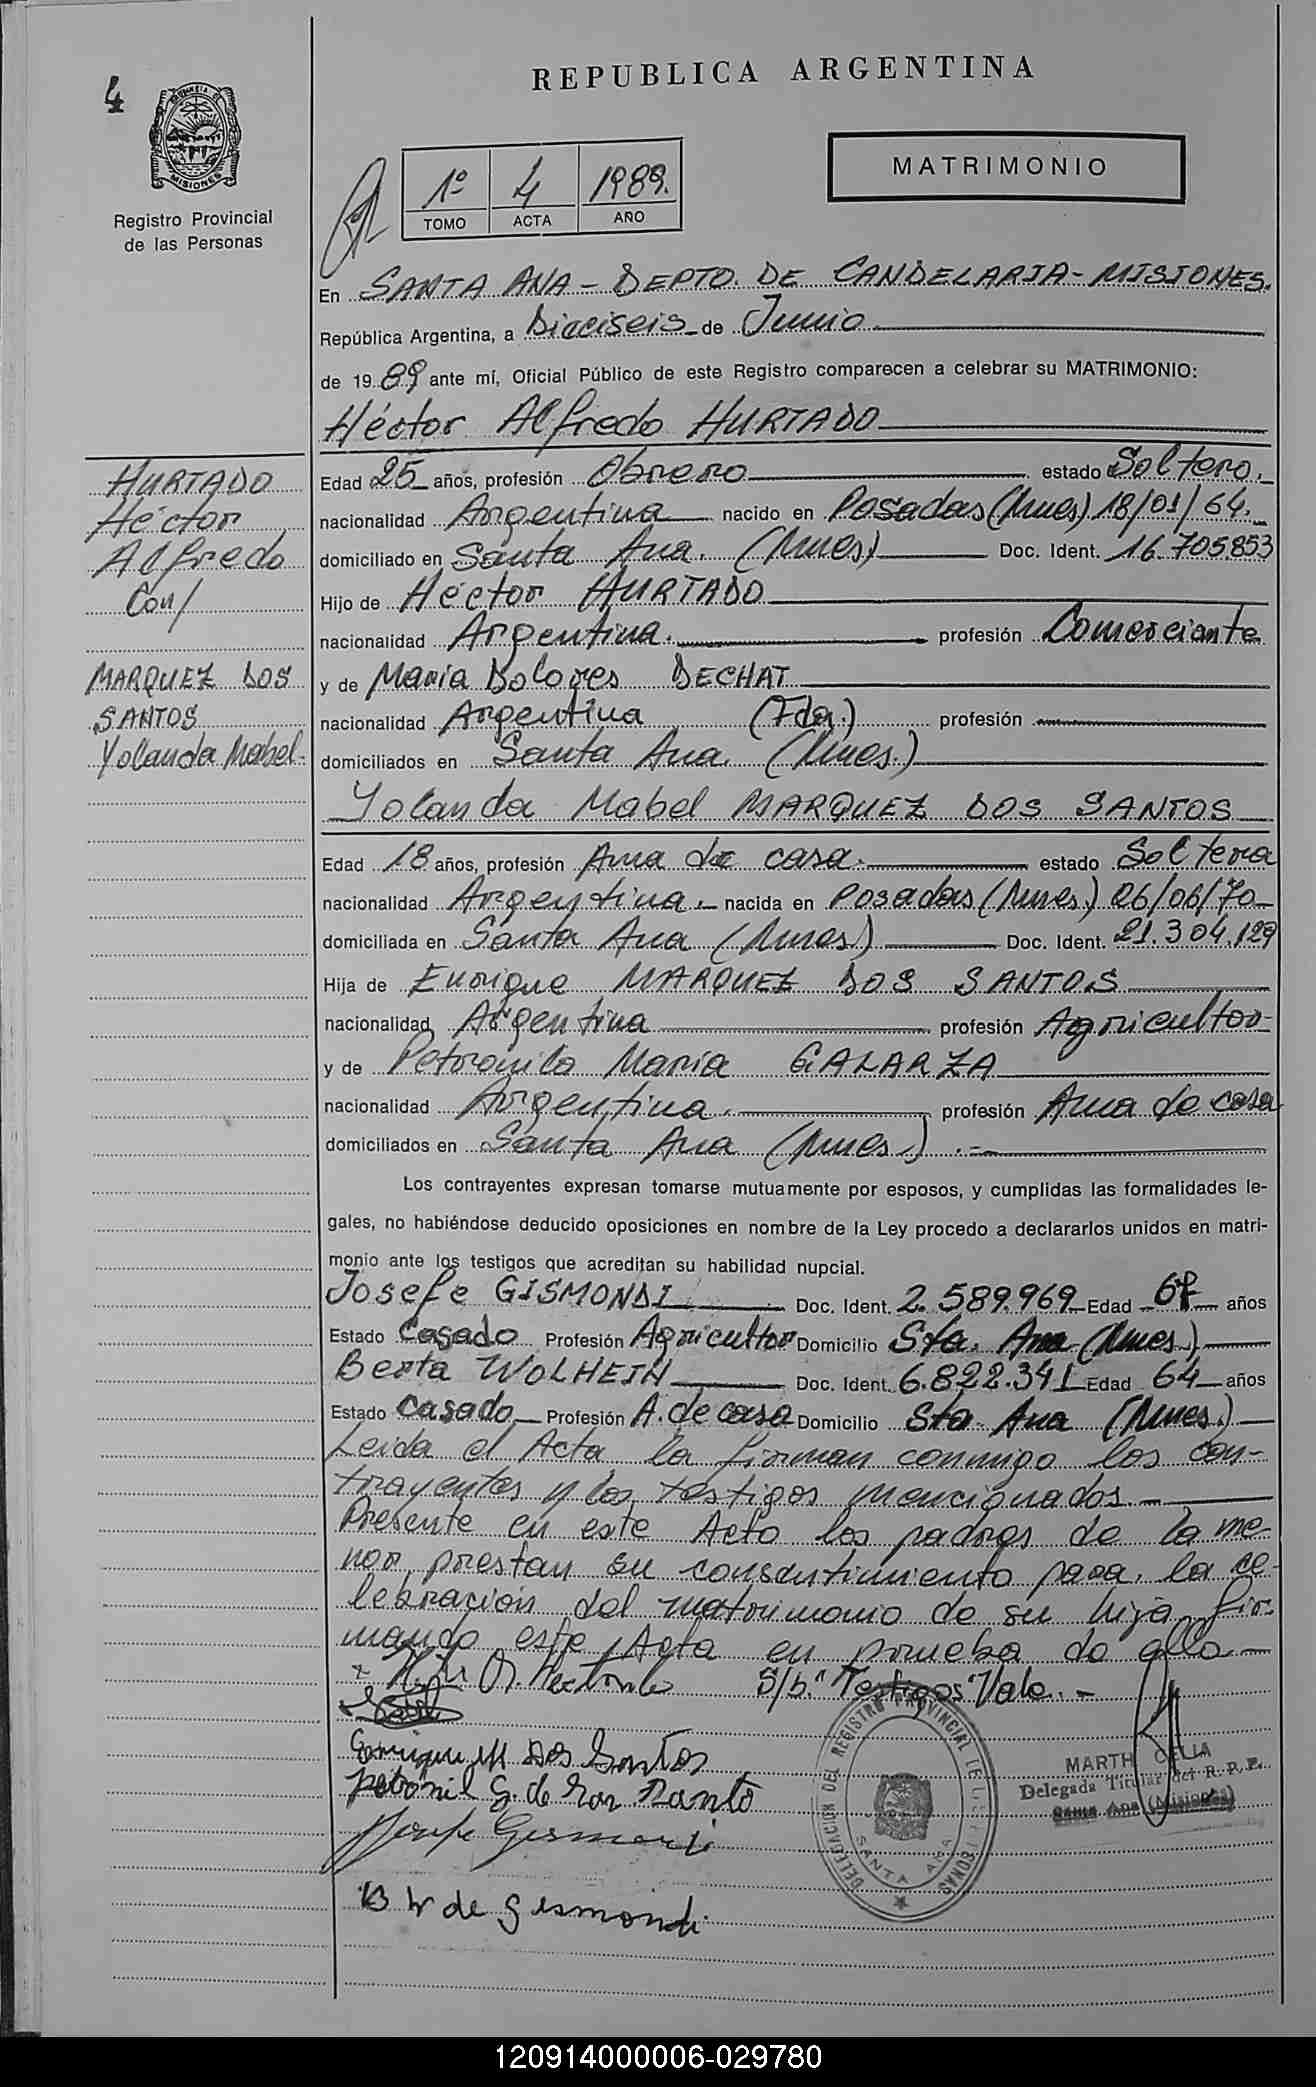 4
PROVINCIA DE
MISIONES
Registro Provincial
de las Personas
REPUBLICA ARGENTINA
1º 4 1989.
TOMO ACTA AÑO
MATRIMONIO
En SANTA ANA - DEPTO. DE CANDELARIA - MISIONES.
República Argentina, a Dieciseis de Junio
de 1989 ante mí, Oficial Público de este Registro comparecen a celebrar su MATRIMONIO:
Héctor Alfredo HURTADO
HURTADO
Héctor
Alfredo
Con/
MARQUEZ DOS
SANTOS
Yolanda Mabel.
Edad 25 años, profesión Obrero estado Soltero.
nacionalidad Argentina nacido en Posadas (Mnes) 18/01/64.
domiciliado en Santa Ana. (Mnes) Doc. Ident. 16.705853
Hijo de Héctor HURTADO
nacionalidad Argentina. profesión Comerciante
y de María Dolores DECHAT
nacionalidad Argentina (Fda.) profesión
domiciliados en Santa Ana. (Mnes.)
Yolanda Mabel MARQUEZ DOS SANTOS
Edad 18 años, profesión Ama de casa. estado Soltera
nacionalidad Argentina. nacida en Posadas (Mnes.) 06/06/70
domiciliada en Santa Ana (Mnes.) Doc. Ident. 21.304.129
Hija de Enrique MARQUEZ DOS SANTOS
nacionalidad Argentina profesión Agricultor
y de Petronila Maria GALARZA
nacionalidad Argentina. profesión Ama de casa
domiciliados en Santa Ana (Mnes.) .=
Los contrayentes expresan tomarse mutuamente por esposos, y cumplidas las formalidades le-
gales, no habiéndose deducido oposiciones en nombre de la Ley procedo a declararlos unidos en matri-
monio ante los testigos que acreditan su habilidad nupcial.
Josefe GISMONDI Doc. Ident. 2.589.969 Edad años
Estado Casado Profesión Agricultor Domicilio Sta. Ana (Mnes.)
Berta WOLHEIN Doc. Ident. 6.822.341 Edad 64 años
Estado Casado Profesión A. de casa Domicilio Sta. Ana (Mnes.)
Leida el Acta la firman conmigo los con-
trayentes y los testigos mencionados.
Presente en este Acto los padres de la me-
nor, prestan su consentimiento para la ce-
lebración del matrimonio de su hija, fir-
mando este Acta en prueba de ello
S/b. "Testigos" Vale. -
Enrique M Dos Santos
G. de Dos Santo
Josefe Gismondi
B W de Gismondi
DELEGACION DEL REGISTRO PROVINCIAL DE LAS PERSONAS
SANTA ANA
MARTH CELIA
Delegada Titular del R. P. P.
Santa Ana (Misiones)
120914000006-029780